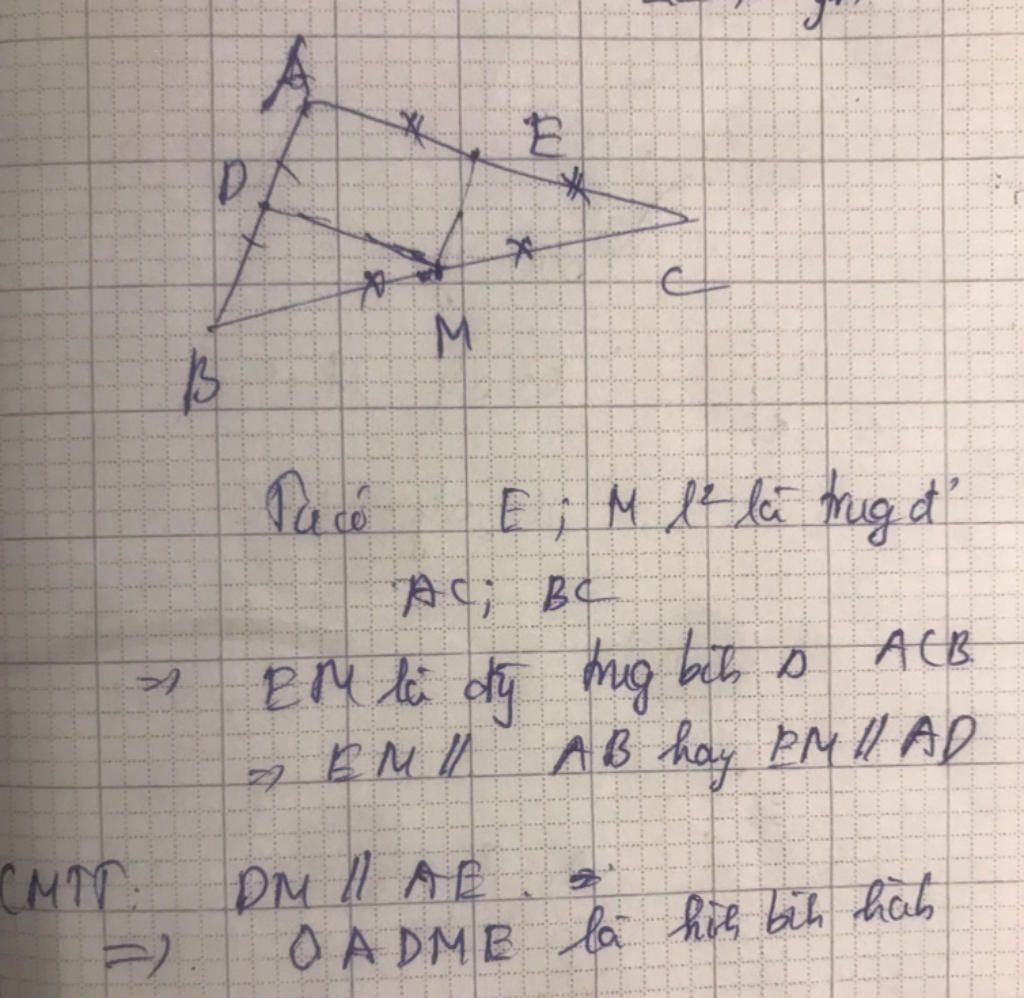 A
E
D
C
M
B
Ta có E ; M l² là trug đ'
AC; BC
=> EM là đg trug bìh Δ ACB
=> EM // AB hay EM // AD
CMTT: DM // AE. =>
=> ◊ ADME là hìh bìh hàh